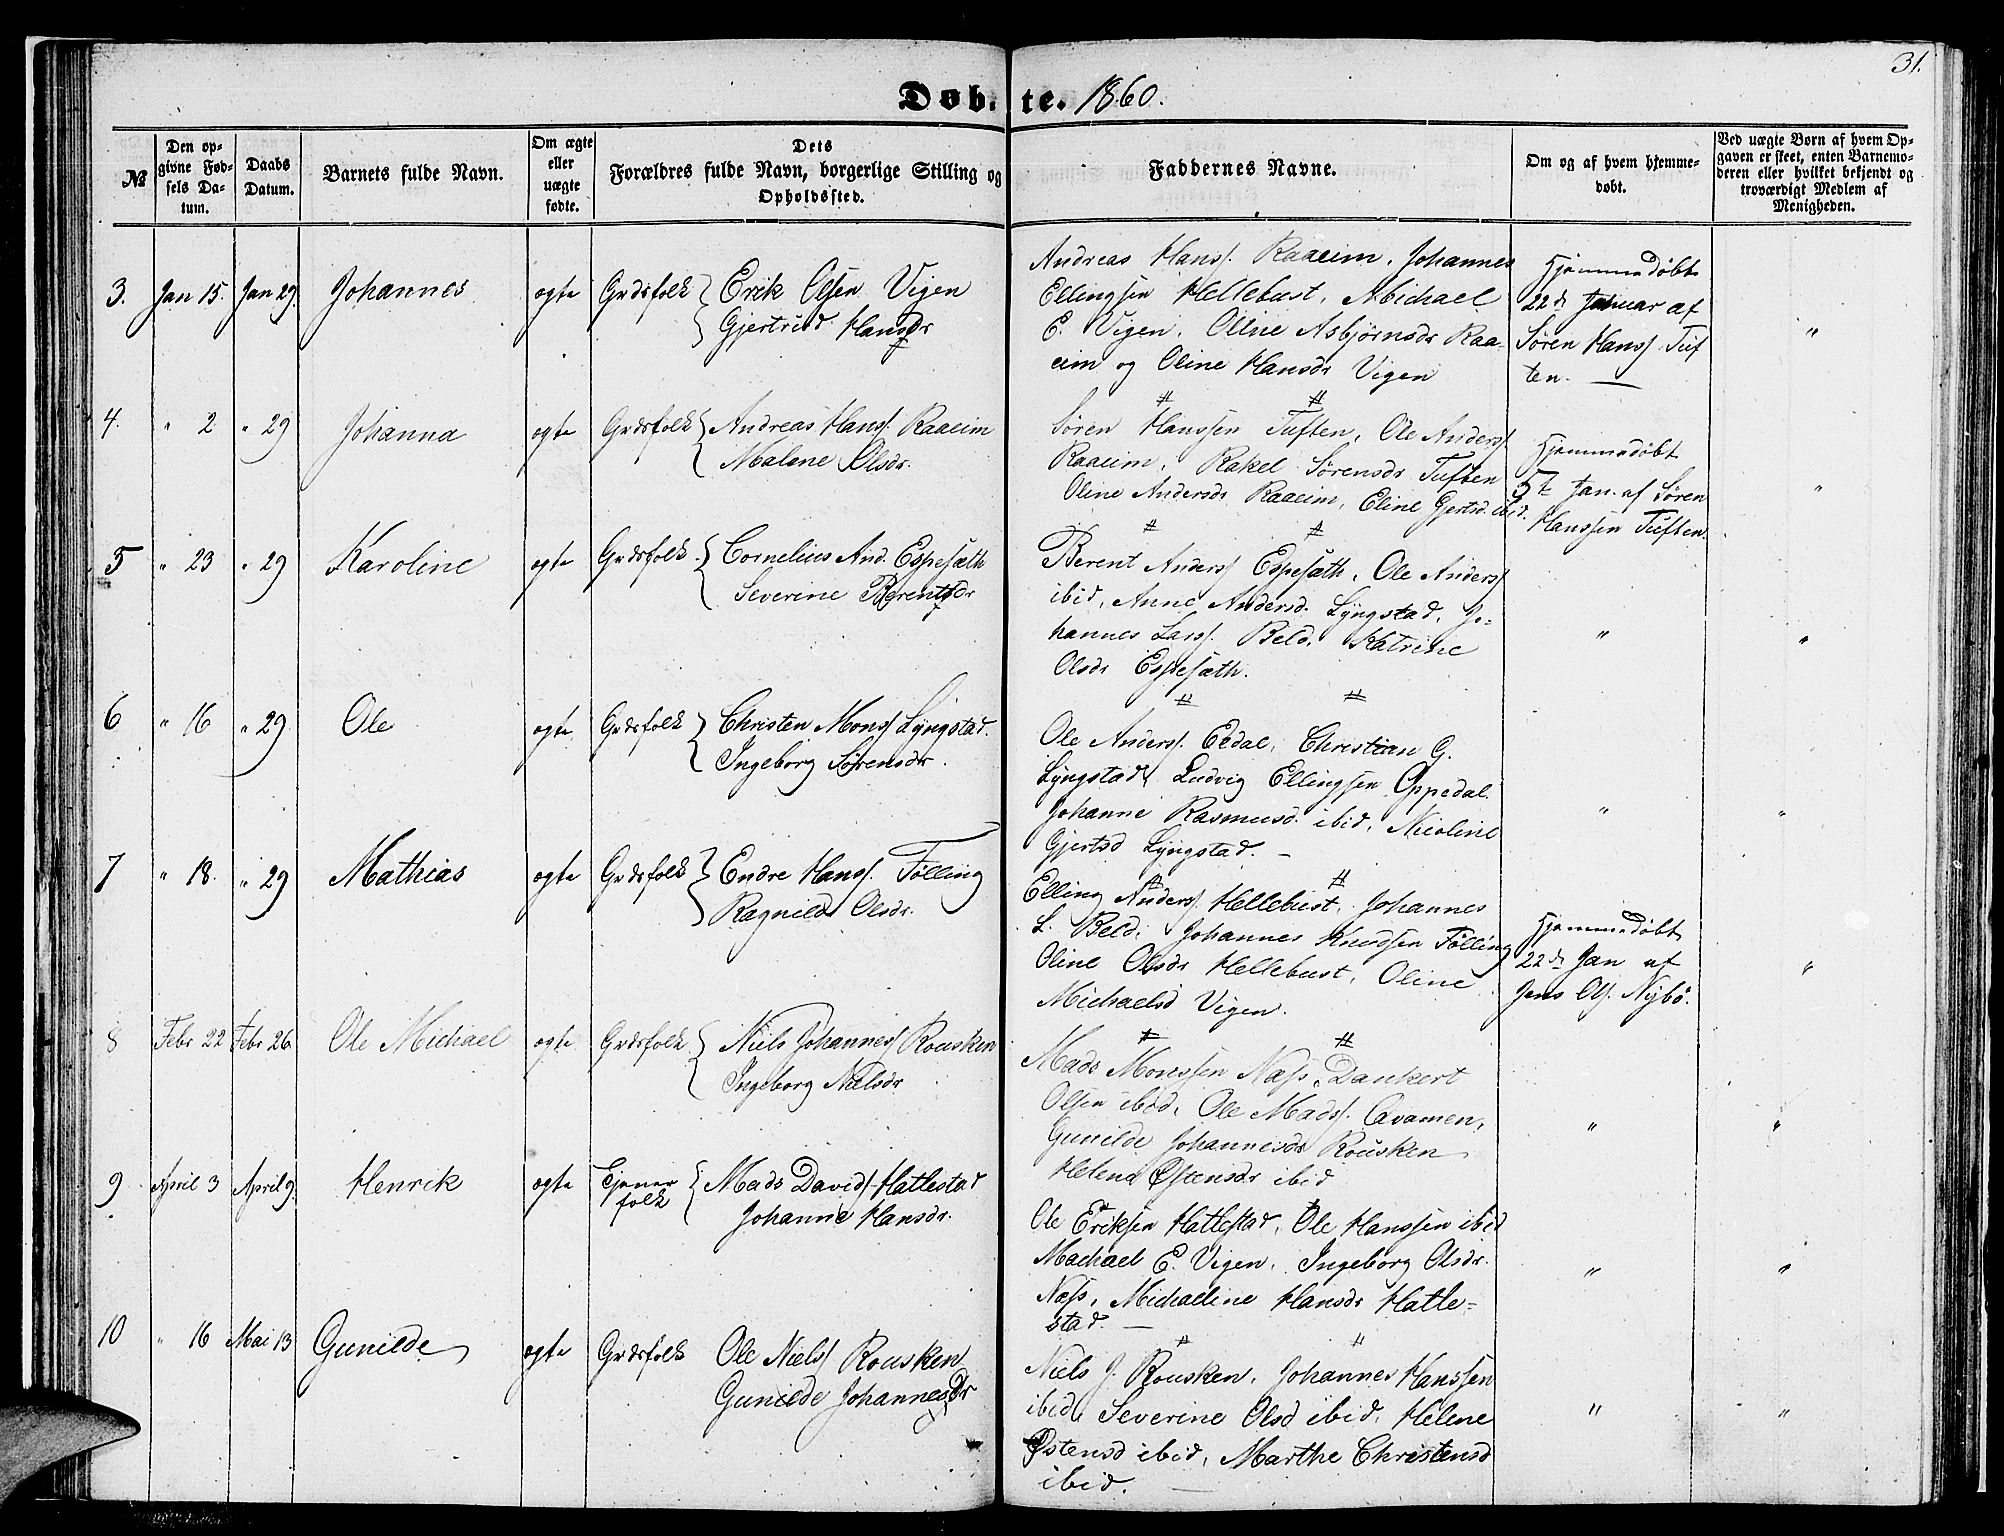 31.
Døbte. 1860.
№
Den opgivne Fødsels Datum.
Daabs Datum.
Barnets fulde Navn.
Om ægte eller uægte fødte.
Dets Forældres fulde Navn, borgerlige Stilling og Opholdssted.
Faddernes Navne.
Om og af hvem hjemmedøbt.
Ved uægte Børn af hvem Opgaven er skeet, enten Barnemoderen eller hvilket bekjendt og troværdigt Medlem af Menigheden.
3. Jan 15. Jan 29 Johannes ogte Grdsfolk { Erik Olsen Vigen
Gjertrud Hansdr
Andreas Hanss. Raaeim, Johannes
Ellingsen Hellebust, Michael
E. Vigen, Oline Asbjørnsdr Raa-
eim og Oline Hansdr Vigen
Hjemmedøbt
22d Januar af
Søren Hanss. Tuf
ten. —
"
4. " 2 " 29 Johanna ogte Grdsfolk { Andreas Hanss. Raaeim
Malene Olsdr.
Søren Hanssen Tuften, Ole Anderss.
Raaeim, Rakel Sørensdr Tuften
Oline Andersdr Raaeim, Eline Gjertsd. ibid.
Hjemmedøbt
5te Jan. af Søren
Hanssen Tuften.
"
5 " 23 " 29 Karoline ogte Grdsfolk. { Cornelius And. Espesæth
Severine Berentsdr
Berent Anderss Espesæth, Ole Anderss
ibid, Anne Andersd. Lÿngstad, Jo-
hannes Larss. Beld, Katrine
Olsdr Espesæth.
" "
6 " 16 " 29 Ole ogte Grdsfolk { Christen Monss Lÿngstad.
Ingeborg Sørensdr.
Ole Anderss. Eedal, Christian G.
Lÿngstad, Ludvig Ellingsen Oppedal
Johanne Rasmusd. ibid, Nicoline
Gjertsd Lÿngstad. —
" "
7 " 18. " 29 Mathias ogte Grdsfolk } Endre Hanss. Følling
Ragnild Olsdr.
Elling Anderss. Hellebust, Johannes
L. Beld, Johannes Knudsen Følling
Oline Olsdr Hellebust, Oline
Michaelsd Vigen.
Hjemmedøbt
22de Jan af
Jens Ols. Nybø.
"
8 Febr 22 Febr 26 Ole Michael ogte Grdsfolk. { Niels Johanness Rousken
Ingeborg Nielsdr
Mads Monssen Næss, Dankert
Olsen ibid, Ole Madss. Qvamen,
Gunilde Johannesdr Rousken
Helena Østensdr ibid
" "
9 April 3 April 9. Henrik ogte Tjener
folk { Mads Davids. Hatlestad
Johanne Hansdr.
Ole Eriksen Hatlestad, Ole Hanssen ibid
Machael E. Vigen, Ingeborg Olsdr.
Næss, Michaeline Hansdr Hatle-
stad. —
" "
10 " 16 Mai 13 Gunilde ogte Grdsfolk Ole Nielss Rousken
Gunilde Johannesdr
Niels J. Rousken, Johannes Hanssen
ibid, Severine Olsd ibid, Helene
Østensd ibid, Marthe Christensd
ibid. —
" "